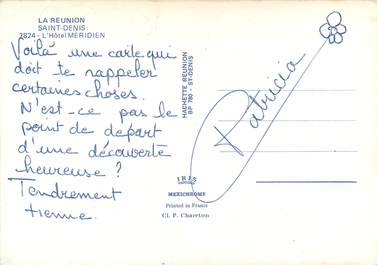 LA REUNION
SAINT-DENIS
2824 - L'Hôtel MERIDIEN
Voilà une carte qui
doit te rappeler
certaines choses.
N'est-ce pas le
point de départ
d'une découverte
heureuse ?
Tendrement
tienne.
Patricia
HACHETTE REUNION
BP 780 - ST-DENIS
IRIS
MEXICHROME
Printed in France
Cl. P. Chareton